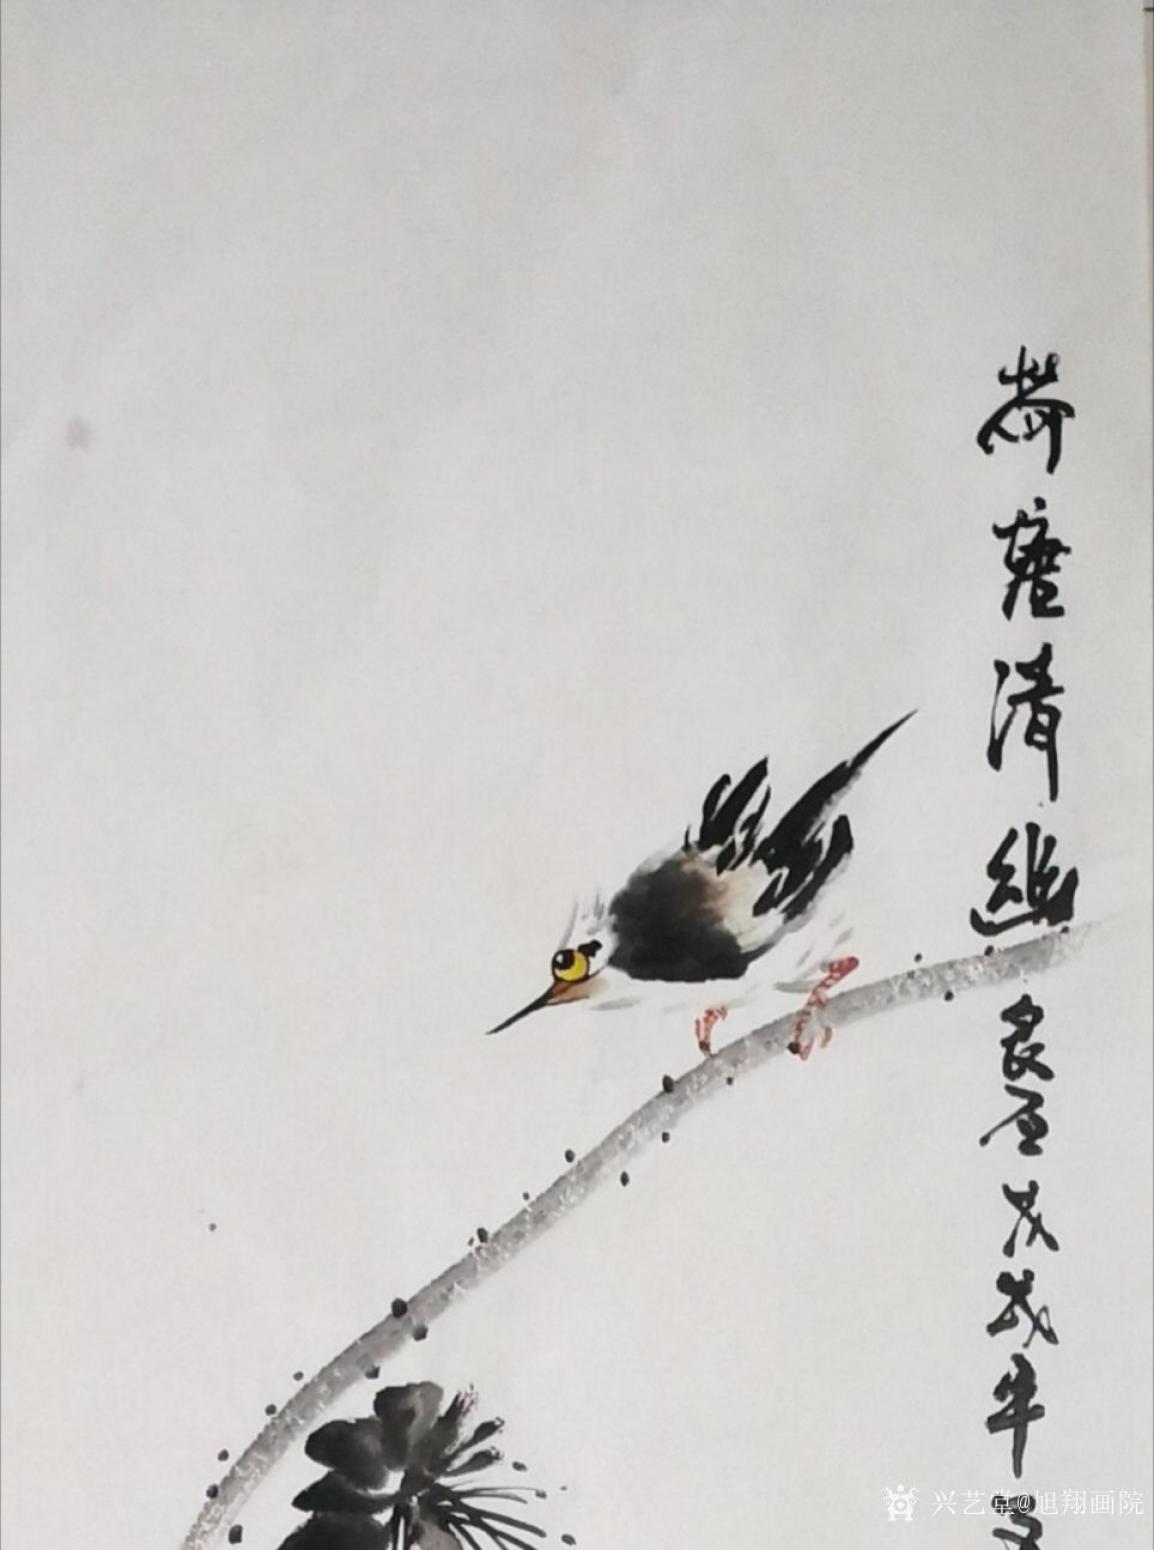 荷塘清幽
戊戌年
兴艺堂@旭翔画院